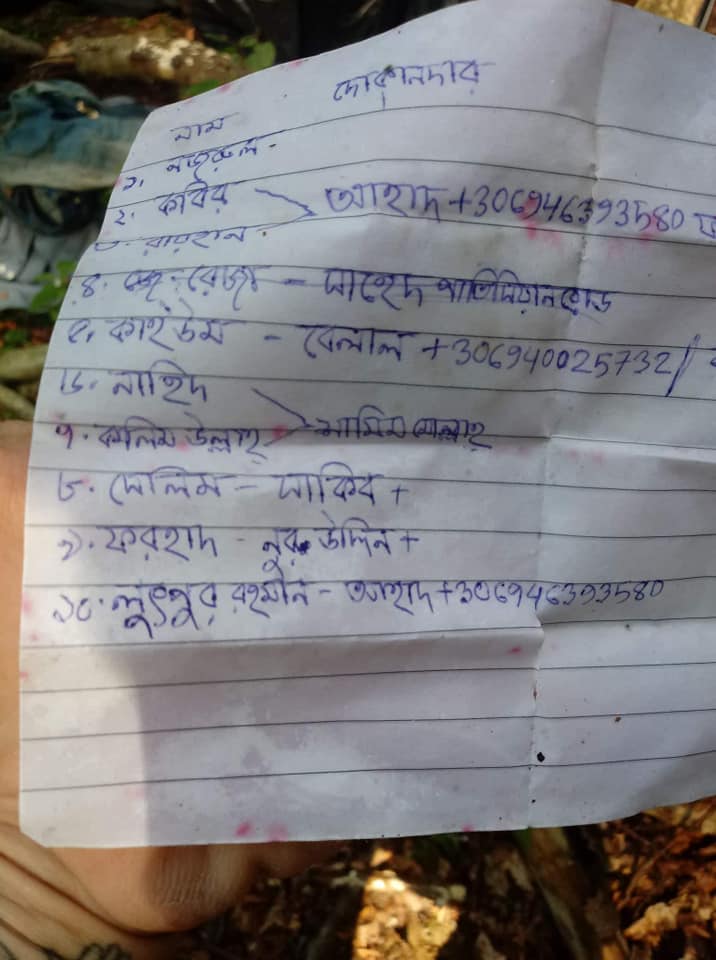 নাম দোকানদার
১. নজরুল -
২. কবির আহাদ +306946393580
৩. রায়হান .
৪. রেজা - সাহেদ
৫. কাইউম - বেলাল +306940025732/
৬. নাহিদ
৭. কলিম উল্লাহ্ শামিম মোল্লাহ্
৮. সেলিম - সাকিব +
৯. ফরহাদ - নুর উদ্দিন +
১০. লুৎপুর রহমান - আহাদ +306946393580